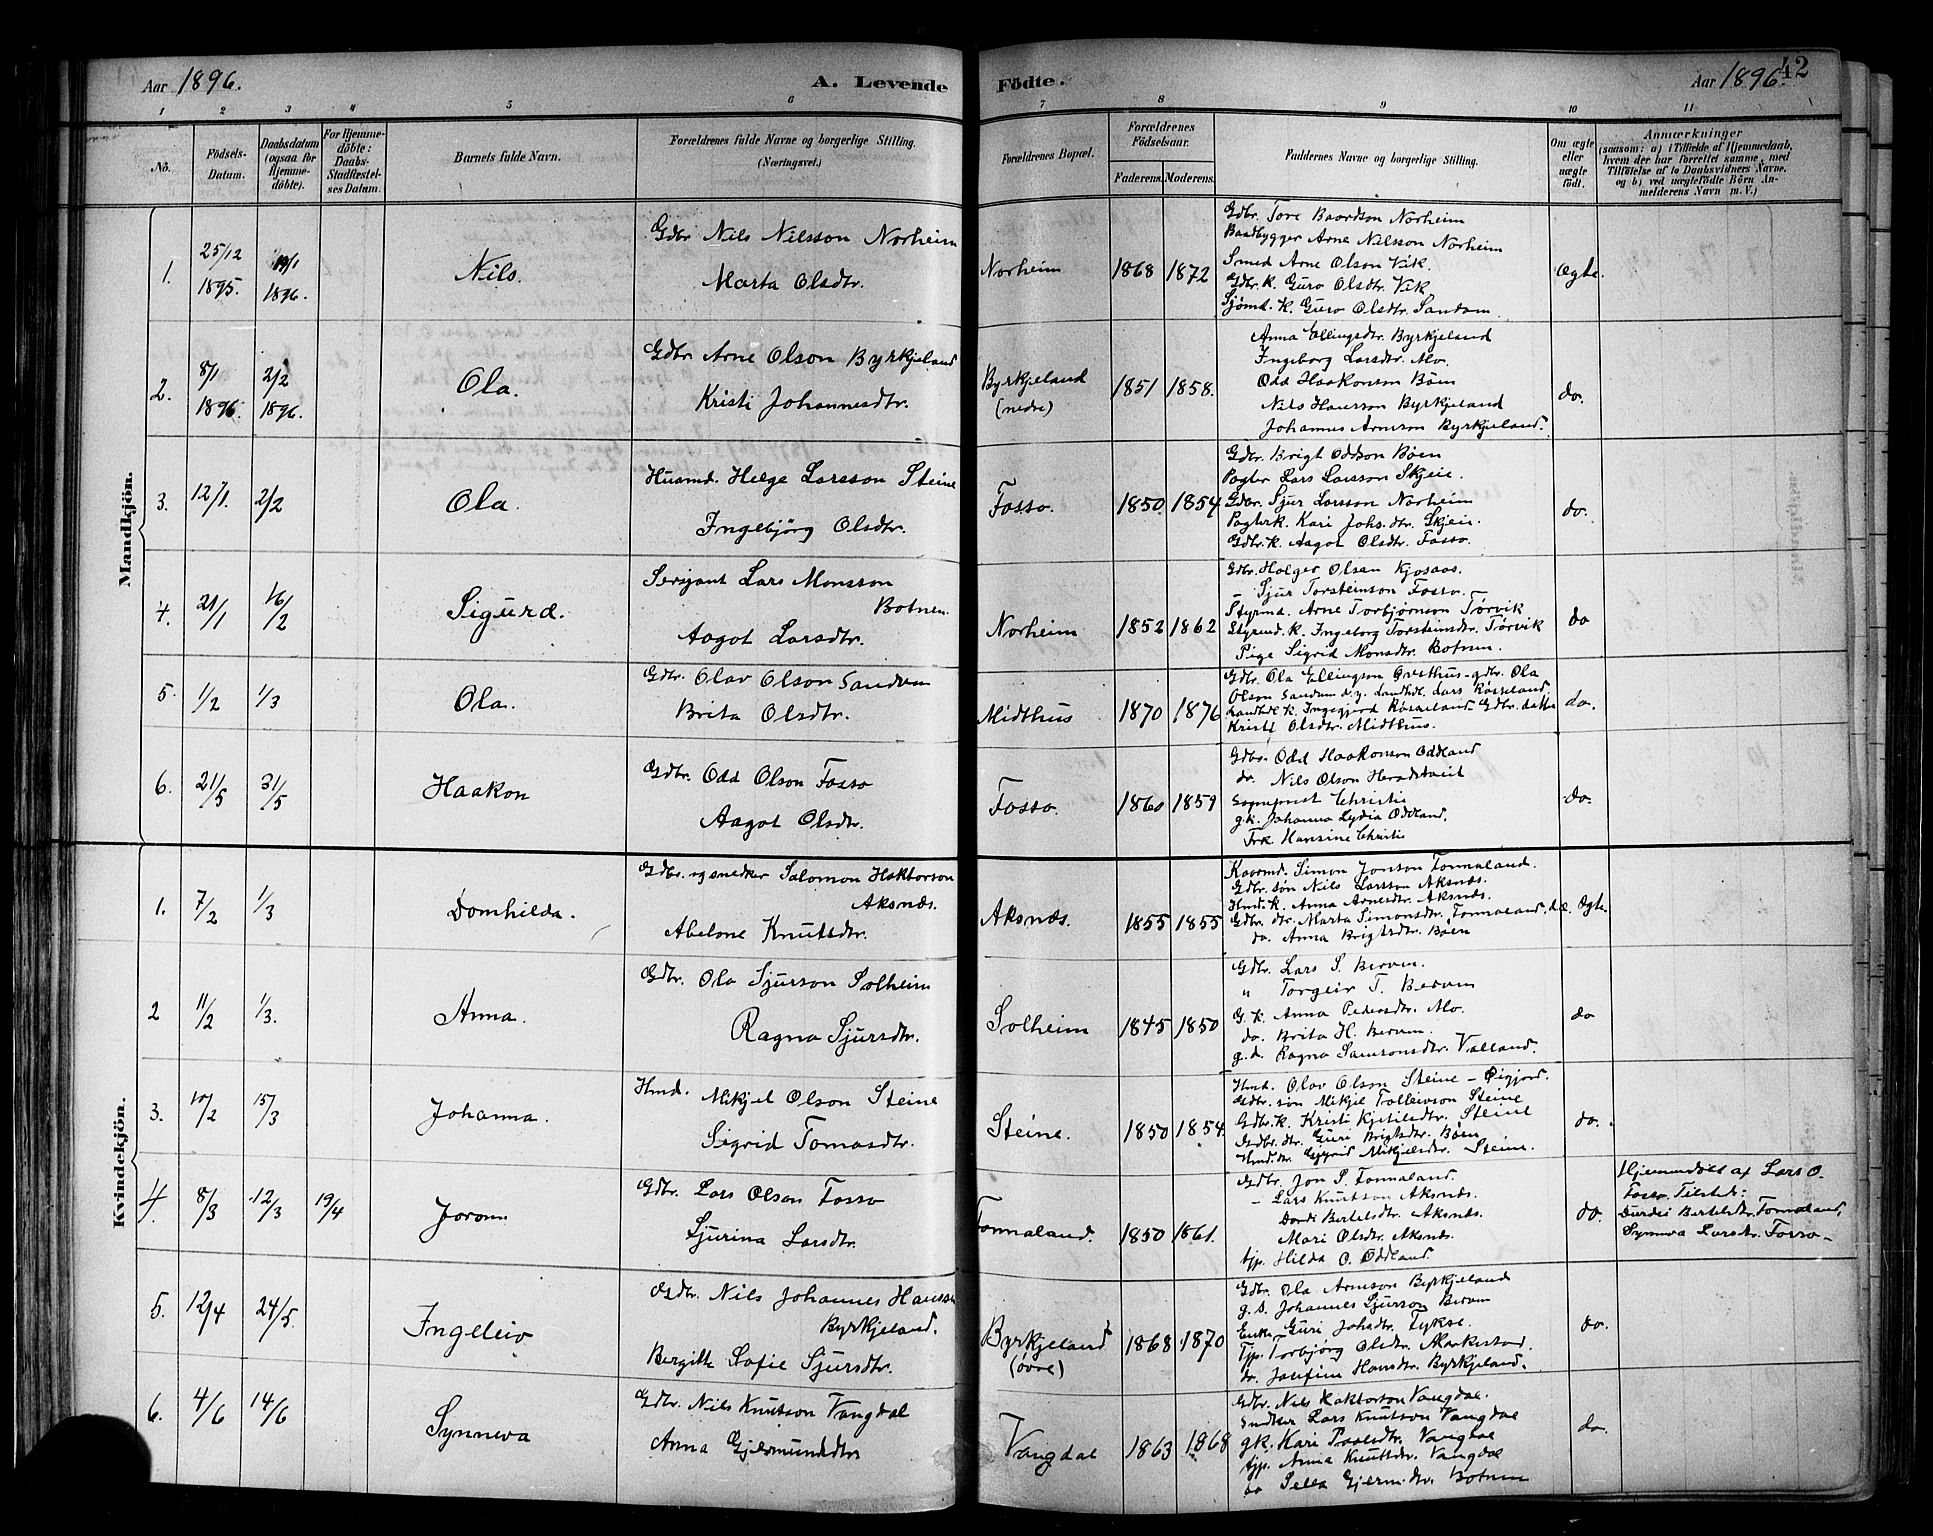 Aar 1896. A. Levende Födte. Aar 1896. 42
1 2 3 4 5 6 7 8 9 10 11
No.
Födsels-Datum.
Daabsdatum (ogsaa for Hjemmedöbte).
For Hjemmedöbte: Daabs-Stadfæstelses Datum.
Barnets fulde Navn.
Forældrenes fulde Navne og borgerlige Stilling. (Næringsvei.)
Forældrenes Bopæl.
Forældrenes Födselsaar.
Faderens. Moderens.
Faddernes Navne og borgerlige Stilling.
Om ægte eller uægte födt.
Anmærkninger
(saasom: a) i Tilfælde af Hjemmedaab, hvem der har forrettet samme, med Tilföielse af to Daabsvidners Navne, og b) ved uægtefödte Börn Anmelderens Navn m. V.)
Mandkjön.
1. 25/12 1895. 19/1 1896. Nils.
Gdbr Nils Nilsson Norheim
Marta Olsdtr.
Norheim 1868 1872
Gdbr. Tore Baardson Norheim
Baadbygger Arne Nilsson Norheim
Smed Arne Olson Vik.
Gdbr. k. Guro Olsdtr. Vik
Sjømd. k. Guro Olsdtr. Sandven.
Ægte.
2. 8/1 1896. 2/2 1896. Ola.
Gdbr Arne Olson Byrkjeland
Kristi Johannesdtr.
Byrkjeland (nedre) 1851 1858.
Anna Ellingsdtr. Byrkjeland
Ingeborg Larsdtr. Mo.
Odd Haakonson Bøen
Nils Hansson Byrkjeland
Johannes Arneson Byrkjeland.
do.
3. 12/1. 2/2 Ola.
Husmd. Helge Larsson Steine
Ingebjörg Olsdtr.
Fosso. 1850 1854
Gdbr. Brigt Oddson Bøen
Pagter Lars Larsson Skjeie.
Gdbr. Sjur Larsson Norheim
Pagterk. Kari Johs.dtr. Skjeie.
Gdbr. k. Aagot Olsdtr. Fosso.
do.
4. 21/1 16/2 Sigurd.
Sersjant Lars Monsson
Botnen.
Aagot Larsdtr.
Norheim 1852 1862
Gdbr. Holger Olsen Kjosaas.
- Sjur Torsteinson Fosso.
Styrmd. Arne Torbjörnson Törvik
Styrmd. k. Ingeborg Torsteinsdtr. Törvik
Pige Sigrid Monsdtr. Botnen.
do
5. 1/2 1/3 Ola.
Gdbr. Olav Olson Sandven
Brita Olsdtr.
Midthus 1870 1876
Gdbr. Ola Ellingson - gdbr. Ola
Olson Sandven d.y. Landhdl. Lars Røsseland
Landhdl. k. Ingegjerd Røsseland. Gdbr. datter
Kristi Olsdtr. Midthus.
do.
6. 21/5 31/5 Haakon
Gdbr. Odd Olson Fosso
Aagot Olsdtr.
Fosso. 1860 1859
Gdbr. Odd Haakonson Oddland
do. Nils Olson Heradstveit
Sogneprest Christie
g.k. Johanna Lydia Oddland,
Frk. Hansine Christie
do.
Kvindekjön.
1. 7/2 1/3 Domhilda.
Gdbr. og snedker Salomon Haktorson
Aksnæs.
Abelone Knutsdtr.
Aksnæs. 1855 1855
Kaarmd. Simon Jonson Tonnaland.
Gdbr. søn Nils Larsson Aksnæs.
Hmd. k. Anna Arnesdtr. Aksnæs.
Gdbr. dtr. Marta Simonsdtr. Tonnaland,
do. Anna Brigtsdtr. Bøen
Ægte.
2 11/2 1/3. Anna.
Gdbr. Ola Sjurson Solheim
Ragna Sjursdtr.
Solheim 1845 1850
Gdbr. Lars S. Berven.
" Torgeir T. Berven
G. k. Anna Pedersdtr. Mo.
do. Brita H. Berven.
g.d. Ragna Samsonsdtr. Valland.
do
3. 10/2 15/3 Johanna.
Hmd. Mikjel Olson Steine
Sigrid Tomasdtr.
Steine. 1850 1854.
Hmd. Olav Olson Steine -
Gdbr. søn Mikjel Tolleivson Steine
Gdbr. k. Kristi Kjetilsdtr. Steine
Gdbr. dtr. Guri Brigtsdtr. Bøen
Hmd. dtr. Sigrid Mikjelsdtr. Steine.
do.
4. 8/3 12/3 19/4 Joron
Gdbr. Lars Olson Fosso
Sjurina Larsdtr.
Tonnaland. 1850 1861.
Gdbr. Jon S. Tonnaland.
- Lars Knutson Aksnæs.
Dordi Bertelsdtr. Aksnæs.
Mari Olsdtr. Aksnæs.
tjp. Hilda O. Oddland.
do.
Hjemmedøbt af Lars O.
Fosso. Tilstede:
Durdei Bertelsdtr. Tonnaland,
Synneva Larsdtr. Fosso -
5. 12/4 24/5. Ingeleiv
Gdbr. Nils Johannes Hansson
Byrkjeland.
Bergitte Sofie Sjursdtr.
Byrkjeland (övre) 1868 1870
Gdbr. Ola Arneson Byrkjeland
g. s. Johannes Sjurson Berven
Enke Guri Johsdtr. Tykse.
Tjp. Torbjörg Olsdtr.
do. Josefine Hansdtr. Byrkjeland.
do.
6. 4/6 14/6 Synneva
Gdbr. Nils Knutson Vangdal
Anna Gjermundsdtr
Vangdal 1863 1868
Gdbr. Nils Haktorson Vangdal.
Snedker Lars Knutson Vangdal
gk. Kari Poalsdtr. Vangdal
tjp. Anna Knutsdtr. Vangdal
do Sella Gjerm.dtr. Botnen
do.